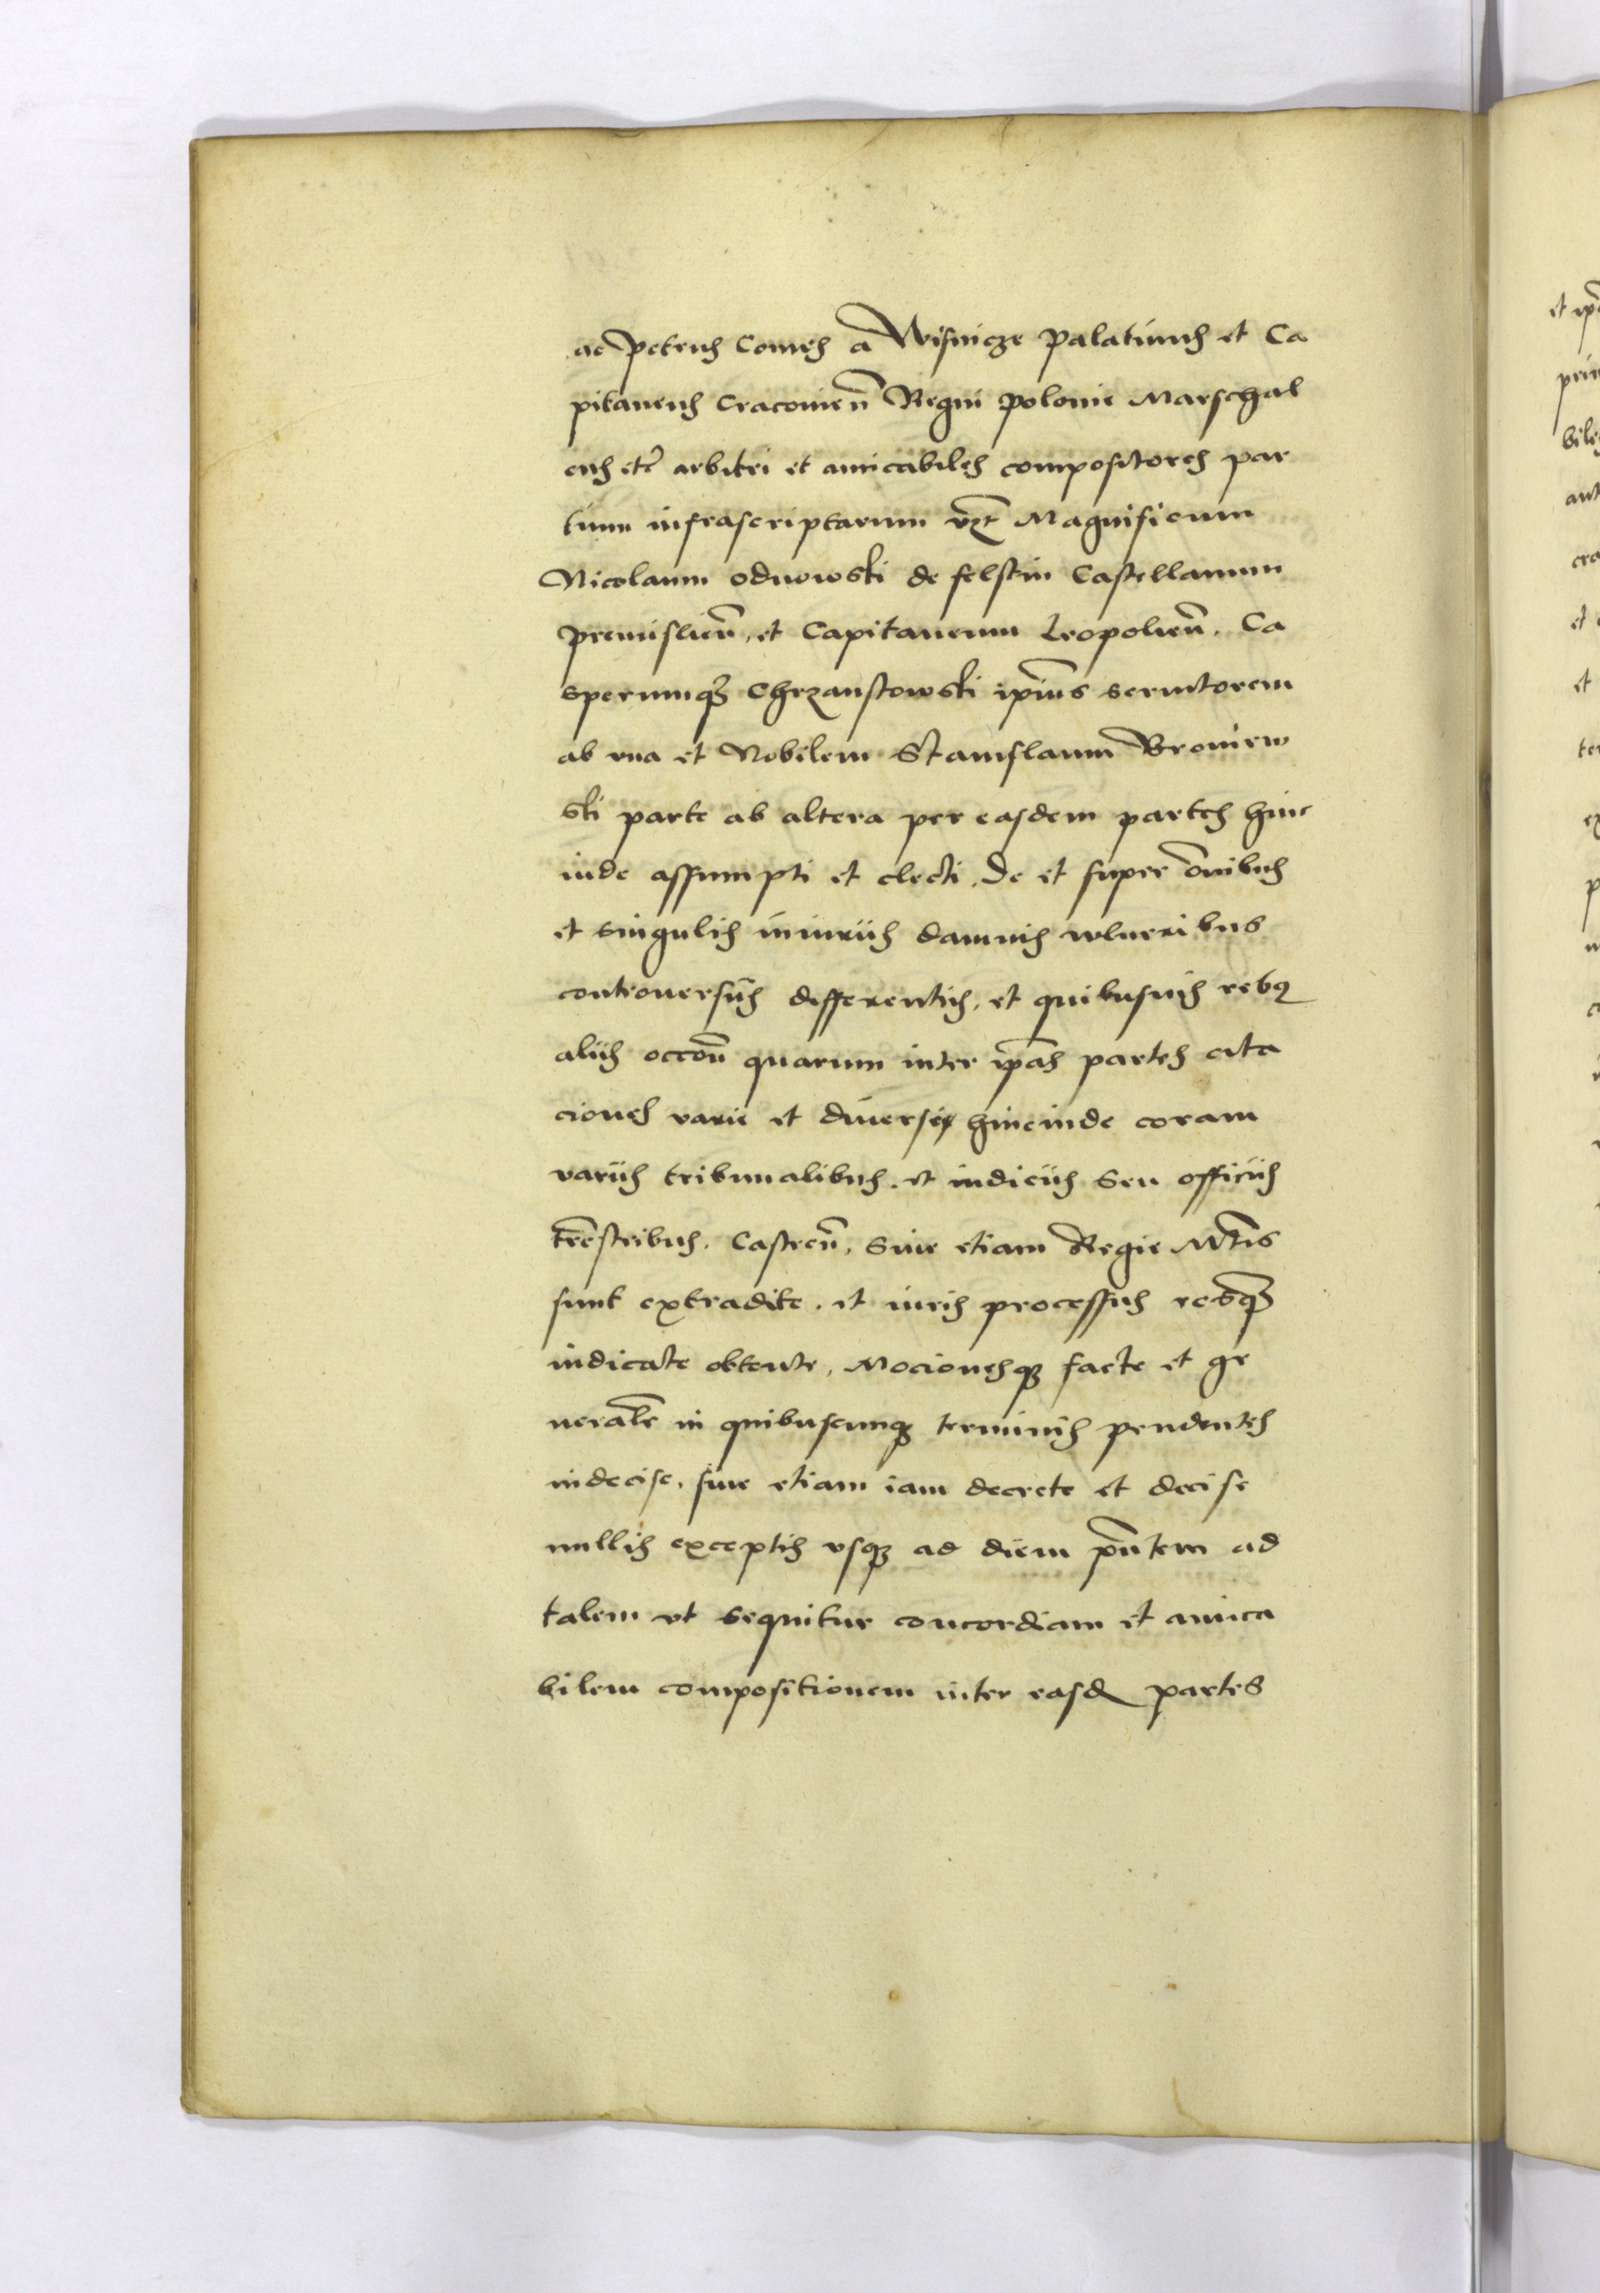 ac Petrus Comes a Wisnicze Palatinus et Ca
pitaneus Cracovien̄ Regni Polonie Marschal
cus etc̄ arbitri et amicabiles compositores par
tium infrascriptarum vz̄t Magnificum
Nicolaum odnowski de felstin Castellanum
Premislien̄, et Capitaneum Leopolien̄. Ca
sperumqꝫ Chrzanstowski ip̄ius seruitorem
ab vna et Nobilem Stanislaum Broniew
ski parte ab altera per easdem partes hinc
inde assumpti et electi, de et super om̄ibus
et singulis iniuriis damnis wlneribus
controuersiis differentiis, et quibusuis rebꝫ
aliis occōn̄ quarum inter ip̄as partes cita
ciones varie et diuerse hincinde coram
variis tribunalibus, et iudiciis Seu officiis
tr̄estribus, Castren̄, Siue etiam Regie M̄tis
sunt extradite, et iuris processus resqꝫ
iudicate obtente, Mocionesqꝫ facte et ge
neral̄r in quibuscunqꝫ terminis pendentes
indecise, siue etiam iam decrete et decise
nullis exceptis vsqꝫ ad diem pn̄tem ad
talem vt sequitur concordiam et amica
bilem compositionem inter easd partes